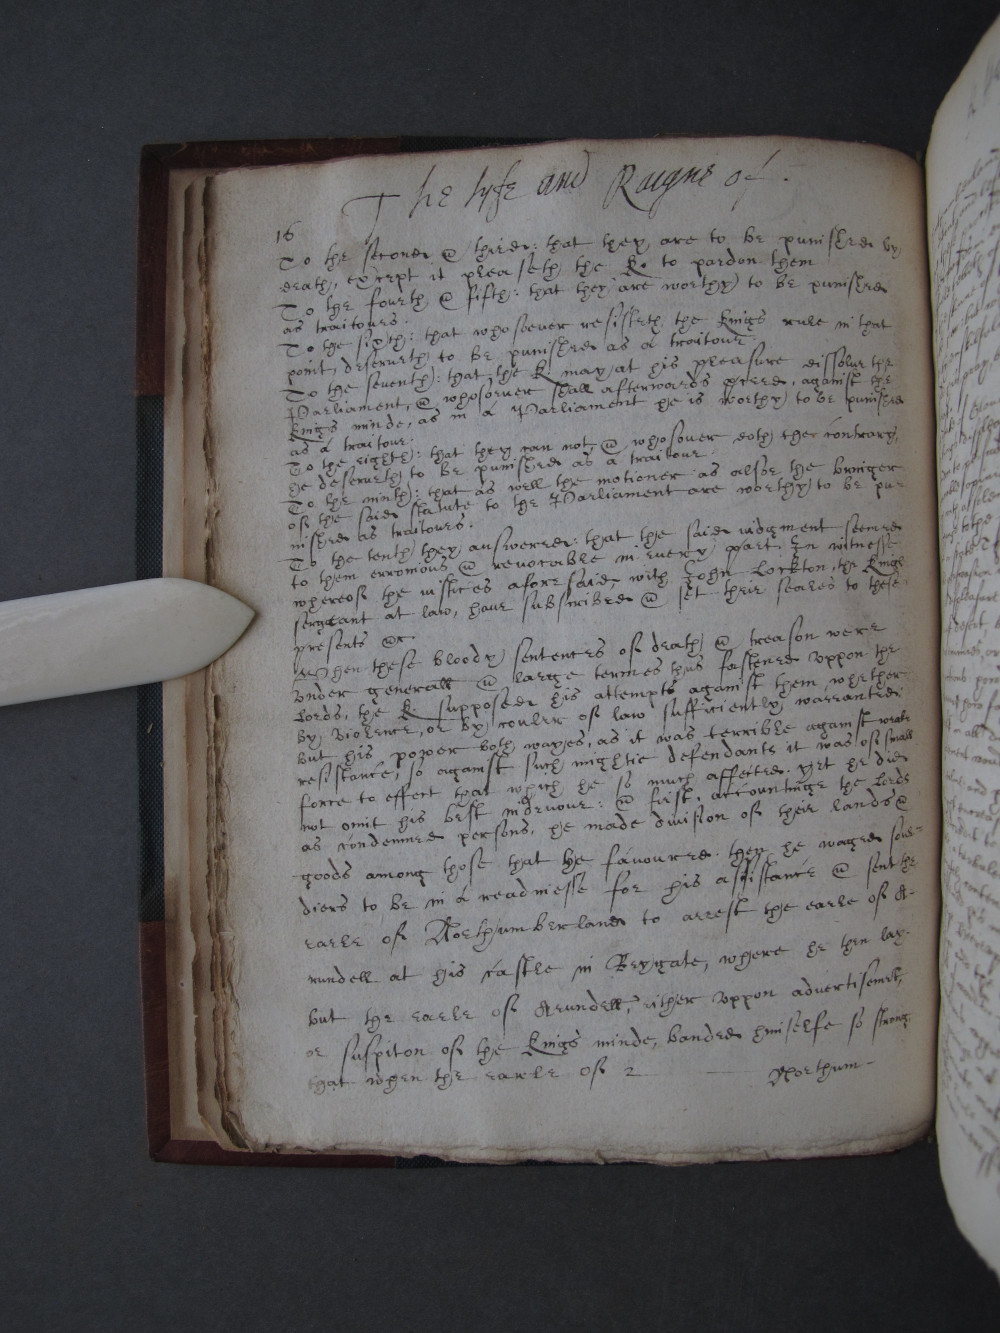 The lyfe and Raigne of
16
To the second & third: that they are to be punished by
death, except it pleaseth the K. to pardon them
To the fourth & fifth: that they are worthy to be punished
as traitours.
To the sixth: that whosoever resisteth the Kings rule in that
point, deserveth to be punished as a traitour
To the seventh: that the K. may at his pleasure dissolve the
Parliament, & whosoever shall afterwards proceed, against the
Kings minde, as in a Parliament he is worthy to be punished
as a traitour.
To the eighth: that they can not, & whosover doth the contrary,
he deserveth to be punished as a traitour.
To the ninth: that as well the motioner as alsoe the bringer
of the said statute to the Parliament are worthy to be pu-
nished as traitours.
To the tenth they answered: that the said iudgment seemed
to them erronious & revocable in every part. In witnesse
whereof the iustices aforesaid, with John Lockton, the Kings
sergeant at law, have subscribed & set their seales to these
presents &c.
When these bloody sentences of death & treason were
under generall & large termes thus fastened uppon the
Lords, the K. supposed his attempts against them whether
by violence, or by couler of law sufficiently warranted:
but his power both wayes, as it was terrible against weake
resistance, so against such mightie defendants it was of small
force to effect that which he so much affected. yet he did
not omit his best indevour: & first, accountinge the Lords
as condemned persons, he made division of their lands &
goods among those that he favoured. then he waged soul-
diers to be in a readinesse for his assistance & sent the
earle of Northumberland to arrest the earle of A-
rundell at his castle in Reygate, where he then lay.
but the earle of Arundell, either uppon advertisement,
or suspiton of the Kings minde, banded himselfe so strong
that when the earle of 2 Northum-